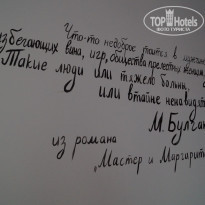 TOP Hotels
ФОТО ТУРИСТА
Что-то недоброе таится в мужчинах
избегающих вина, игр, общества прелестных женщин,
Такие люди или тяжело больны,
или втайне ненавидят
М. Булгак
из романа
„Мастер и Маргарита